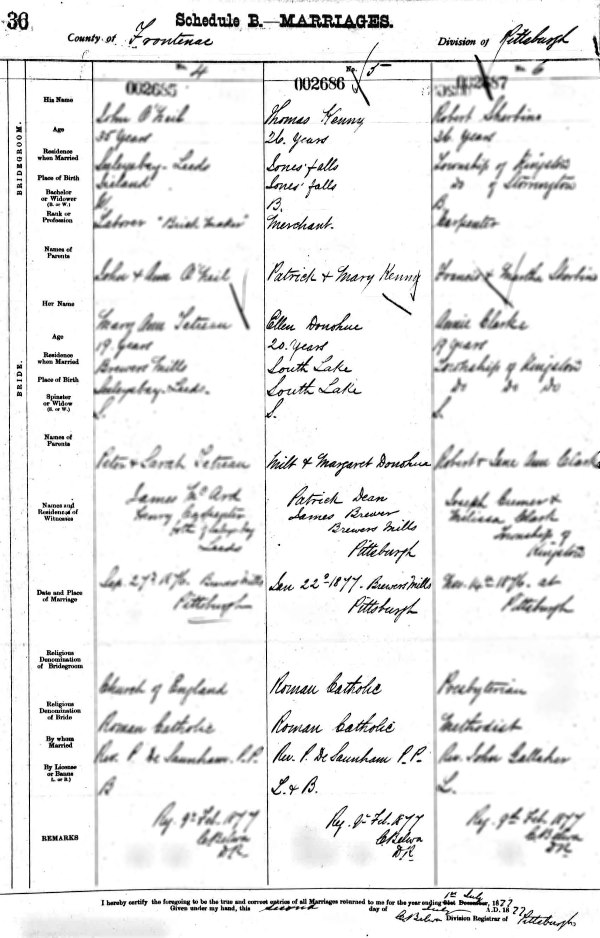 36
Schedule B.—MARRIAGES.
County of Frontenac
Division of Pittsburgh
4
No. 5
6
002685
002686
002687
BRIDEGROOM.
His Name
John O'Neil
Thomas Kenny
Robert
Age
35 Years
26. Years
26 Years
Residence when Married
Leeds
Jones' falls
Township of Kingston
Place of Birth
Ireland
Jones' falls
Do of Storrington
Bachelor or Widower (B. or W.)
B.
B
Rank or Profession
Laborer "Brick Maker"
Merchant.
Carpenter
Names of Parents
John & Ann O'Neil
Patrick & Mary Kenny
Francis & Martha
BRIDE.
Her Name
Mary Ann
Ellen Donohue
Annie Clarke
Age
19 Years
20. Years
19 Years
Residence when Married
Brewers Mills
South Lake
Township of Kingston
Place of Birth
Leeds.
South Lake
Do Do Do
Spinster or Widow (S. or W.)
S.
S.
S.
Names of Parents
Peter & Sarah
Milt & Margaret Donohue
Robert & Jane Ann Clark
Names and Residences of Witnesses
James
Henry
Leeds
Patrick Dean
James Brewer
Brewers Mills
Pittsburgh
Joseph
Melissa Clark
Township of
Kingston
Date and Place of Marriage
Sep. 27th 1876. Brewers Mills
Pittsburgh
Jan 22d 1877. Brewers Mills
Pittsburgh
Nov. 14th 1876. at
Pittsburgh
Religious Denomination of Bridegroom
Church of England
Roman Catholic
Presbyterian
Religious Denomination of Bride
Roman Catholic
Roman Catholic
Methodist
By whom Married
Rev. P. De Saunham. P.P.
Rev. P. De Saunham P.P.
Rev. John Gallaher
By License or Banns (L. or B.)
B
L. & B.
L.
REMARKS
Reg. 9th Feb. 1877
C Belwn
D.R.
Reg. 9th Feb. 1877
C Belwn
D.R.
Reg. 9th Feb. 1877
C Belwn
D.R.
I hereby certify the foregoing to be the true and correct entries of all Marriages returned to me for the year ending 31st December, 1st July 1877
Given under my hand, this second day of July A.D. 1877
C Belwn Division Registrar of Pittsburgh